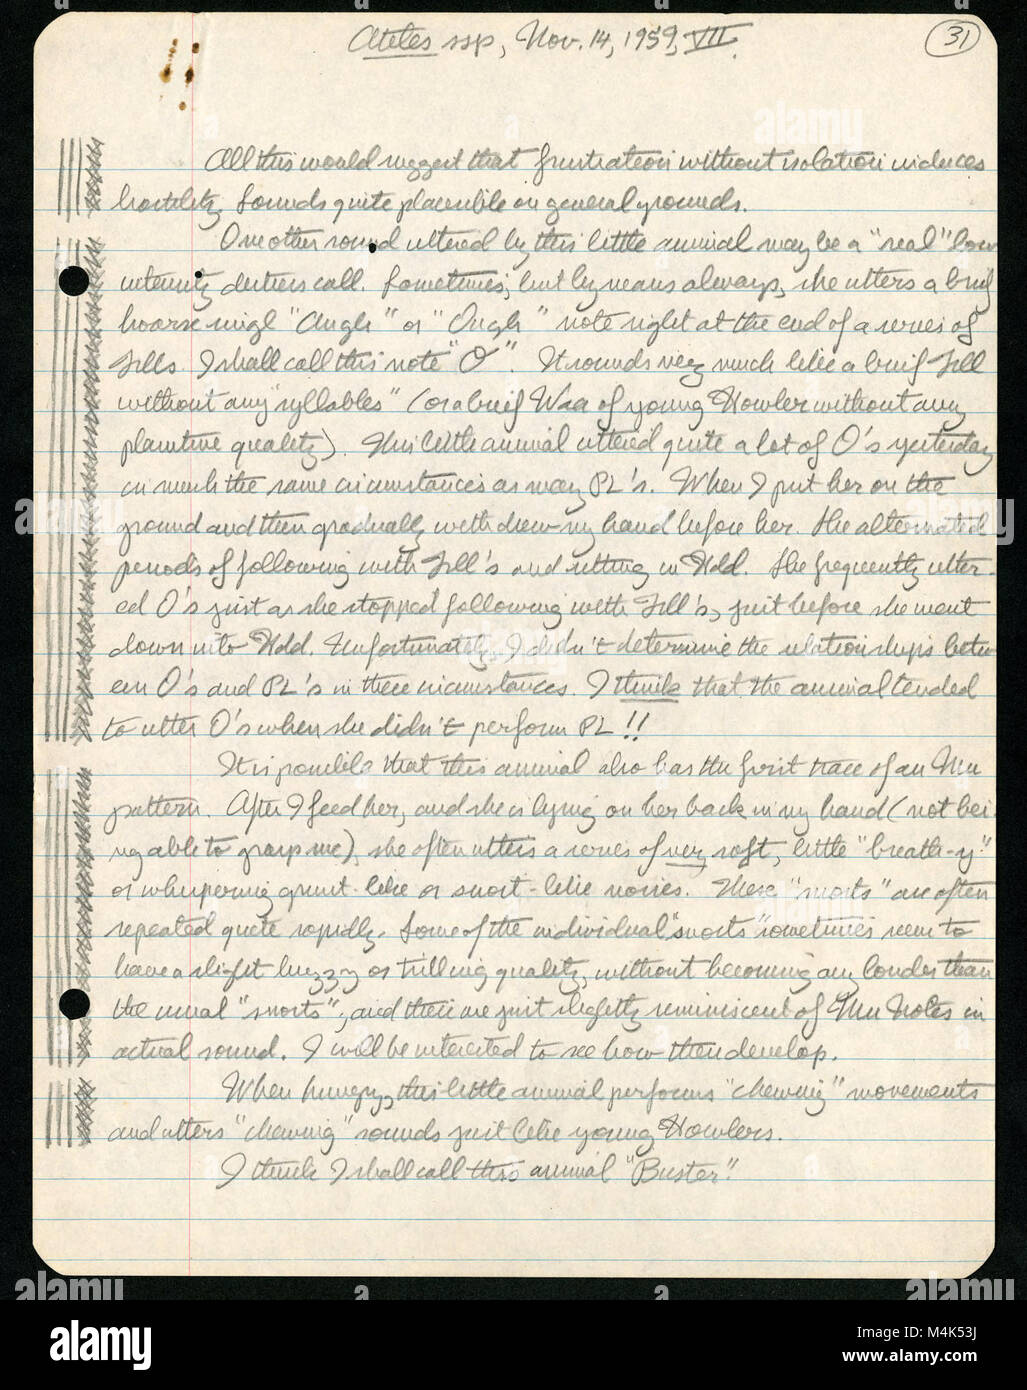 Ateles ssp, Nov. 14, 1959, VII.
31
All this would suggest that frustration without isolation induces
hostility. Sounds quite plausible on general grounds.
One other sound uttered by this little animal may be a "real" low
intensity distress call. Sometimes, but by means always, she utters a brief
hoarse "Augh" or "Ough" note right at the end of a series of
Trills. I shall call this note "O". It sounds very much like a brief Trill
without any "syllables" (or a brief Waa of young Howler without any
plaintive quality). This little animal uttered quite a lot of O's yesterday
in much the same circumstances as many PL's. When I put her on the
ground and then gradually withdrew my hand before her. She alternated
periods of following with Trill's and sitting in Hdd. She frequently utter-
ed O's just as she stopped following with Trill's, just before she went
down into Hdd. Unfortunately, I didn't determine the relationships betw
een O's and PL's in these circumstances. I think that the animal tended
to utter O's when she didn't perform PL!!
It is possible that this animal also has the first trace of an Mu
pattern. After I feed her, and she is lying on her back in my hand (not bei
ng able to grasp me), she often utters a series of very soft, little "breath-y"
or whispering grunt-like or snort-like noises. These "snorts" are often
repeated quite rapidly. Some of the individual "snorts" sometimes seem to
have a slight buzzy or trilling quality, without becoming any louder than
the usual "snorts", and these are just slightly reminiscent of Mu Notes in
actual sound. I will be interested to see how they develop.
When hungry, this little animal performs "chewing" movements
and utters "chewing" sounds just like young Howlers.
I think I shall call this animal "Buster".
alamy
M4K53J
www.alamy.com